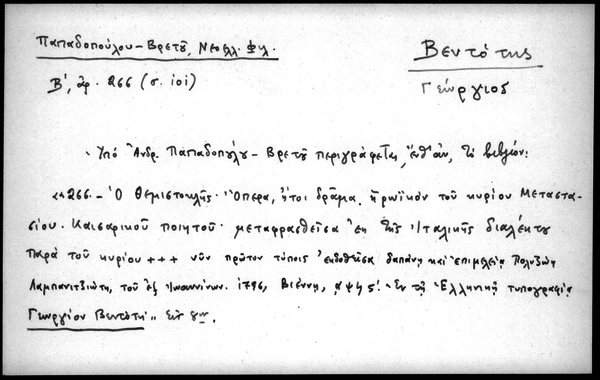 Παπαδοπούλου-Βρετοῦ, Νεοελλ. Φιλ.
Βεντότης
Β', ἀρ. 266 (σ. 101)
Γεώργιος
Ὑπό Ἀνδρ. Παπαδοπούλου-Βρετοῦ περιγράφεται, ἐνθ' ἀν, τό βιβλίον:
«266.- Ὁ Θεμιστοκλῆς· Ὄπερα, ἤτοι δρᾶμα ἡρωϊκόν τοῦ κυρίου Μεταστα-
σίου. Καισαρικοῦ ποιητοῦ· μεταφρασθεῖσα ἐκ τῆς Ἰταλικῆς διαλέκτου
παρά τοῦ κυρίου +++ νῦν πρῶτον τύποις ἐκδοθεῖσα δαπάνῃ καί ἐπιμελείᾳ Πολυζώη
Λαμπανιτζιώτη, τοῦ ἐξ Ἰωαννίνων. 1796, Βιέννη, αψϟς'. Ἐν τῇ Ἑλληνικῇ τυπογραφίᾳ
Γεωργίου Βεντότη» Εἰς 8ον.